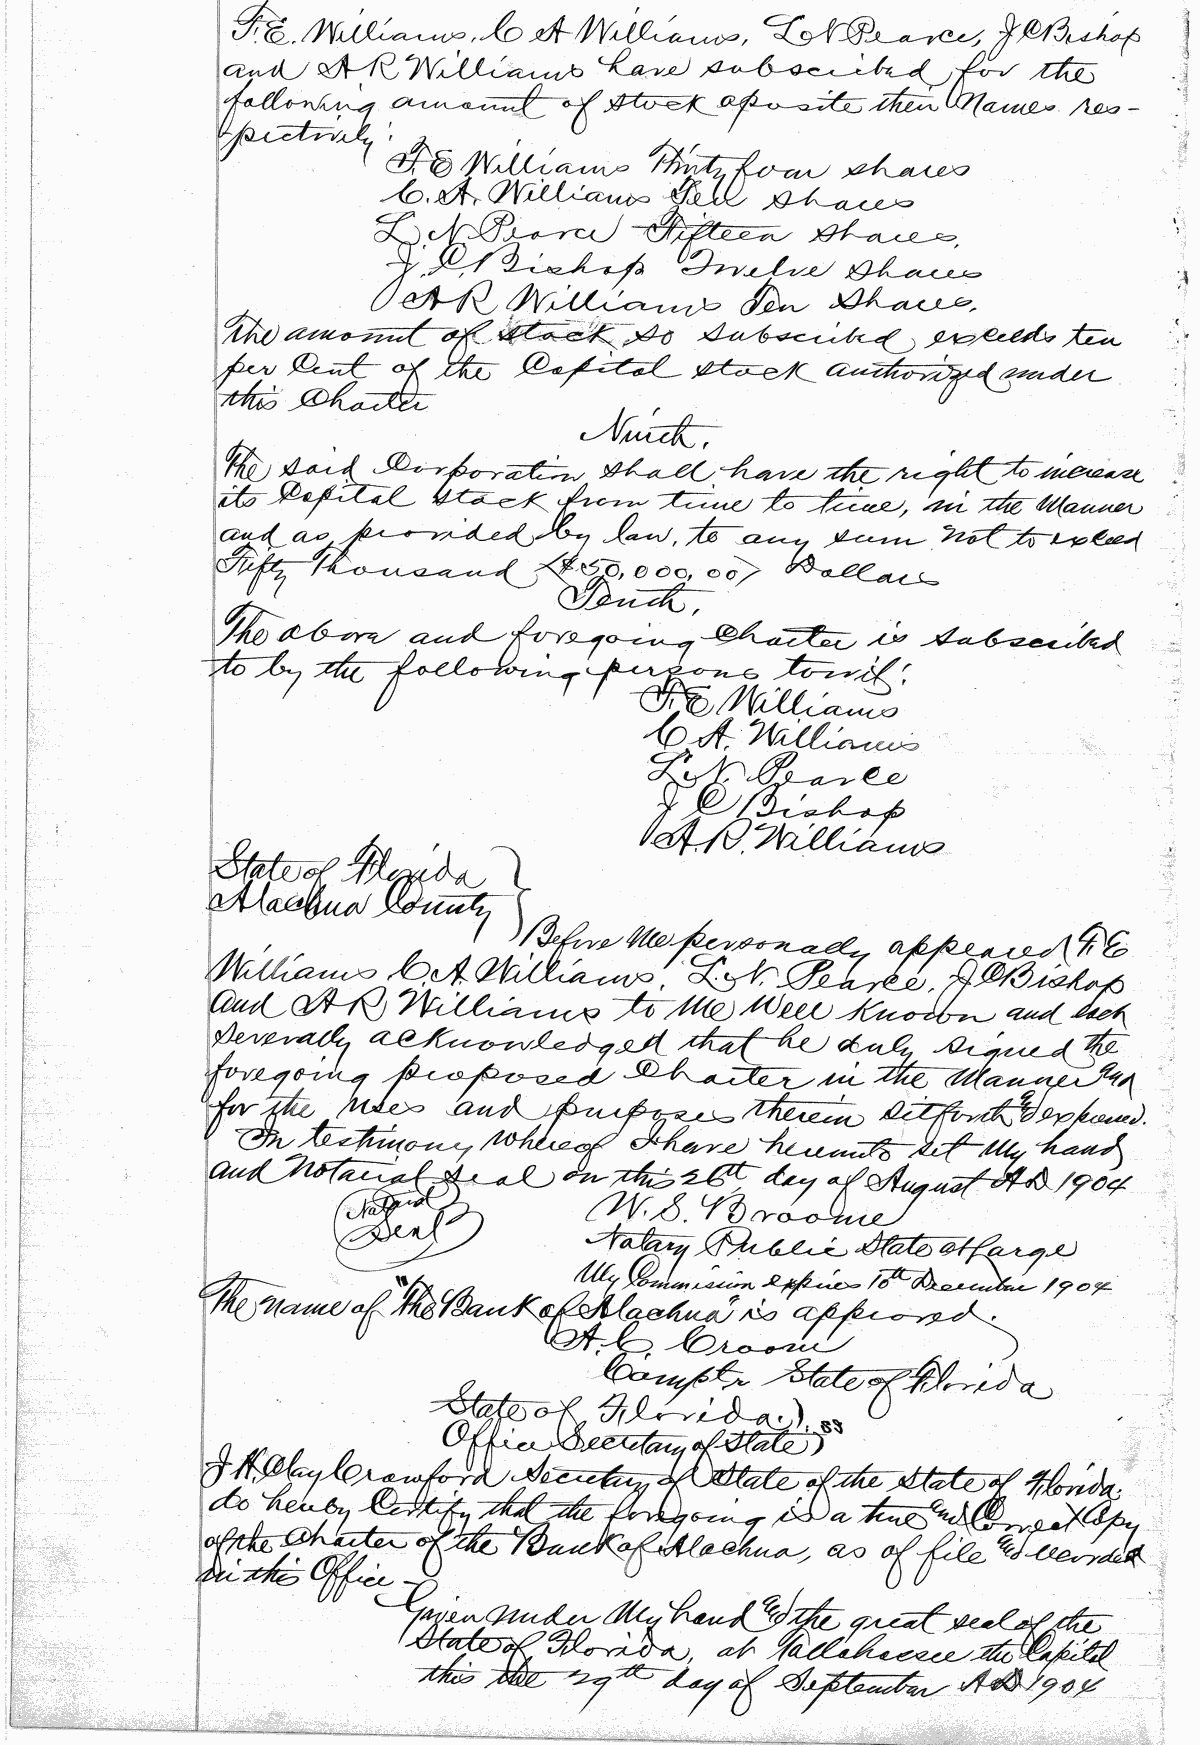 F.E. Williams, C A Williams, L N Pearce, J C Bishop
and A R Williams have subscribed for the
following amount of stock oposite their Names res-
pectively:
F. E Williams Thirty four shares
C. A. Williams Ten shares
L. N Pearce Fifteen shares,
J. C. Bishop Twelve shares
A R Williams Ten shares.
The amount of stock so subscribed, exceeds ten
per Cent of the Capital stock authorized under
this Charter
Ninth.
The said Corporation shall have the right to increase
its Capital stock from time to time, in the Manner
and as provided by law, to any sum not to exceed
Fifty Thousand ($50,000,00) Dollars
Tenth.
The above and foregoing Charter is subscribed
to by the following persons towit:
F. E Williams
C A. Williams
L. N. Pearce
J C Bishop
A. R. Williams
State of Florida
Alachua County
Before Me personally appeared F. E
Williams C. A. Williams, L. N. Pearce, J C Bishop
and A R Williams to Me Well Known and each
severally acknowledged that he duly signed the
foregoing proposed Charter in the Manner and
for the uses and purposes therein setforth and expressed.
In testimony whereof I have hereunto set My hand
and Notarial seal on this 26th day of August A D 1904
Notarial
Seal
W. S. Broome
Notary Public State at Large
My Commission expires 10th December 1904
The name of "The Bank of Alachua" is approved.
A. C. Croom
Comptr State of Florida
State of Florida.) ss
Office Secretary of State)
I H. Clay Crawford Secretary of State of the State of Florida,
do hereby Certify that the foregoing is a true and Correct Copy
of the Charter of the Bank of Alachua, as of file and recorded
in this Office -
Given under My hand and the great seal of the
State of Florida, at Tallahassee the Capital
this the 29th day of September A D 1904